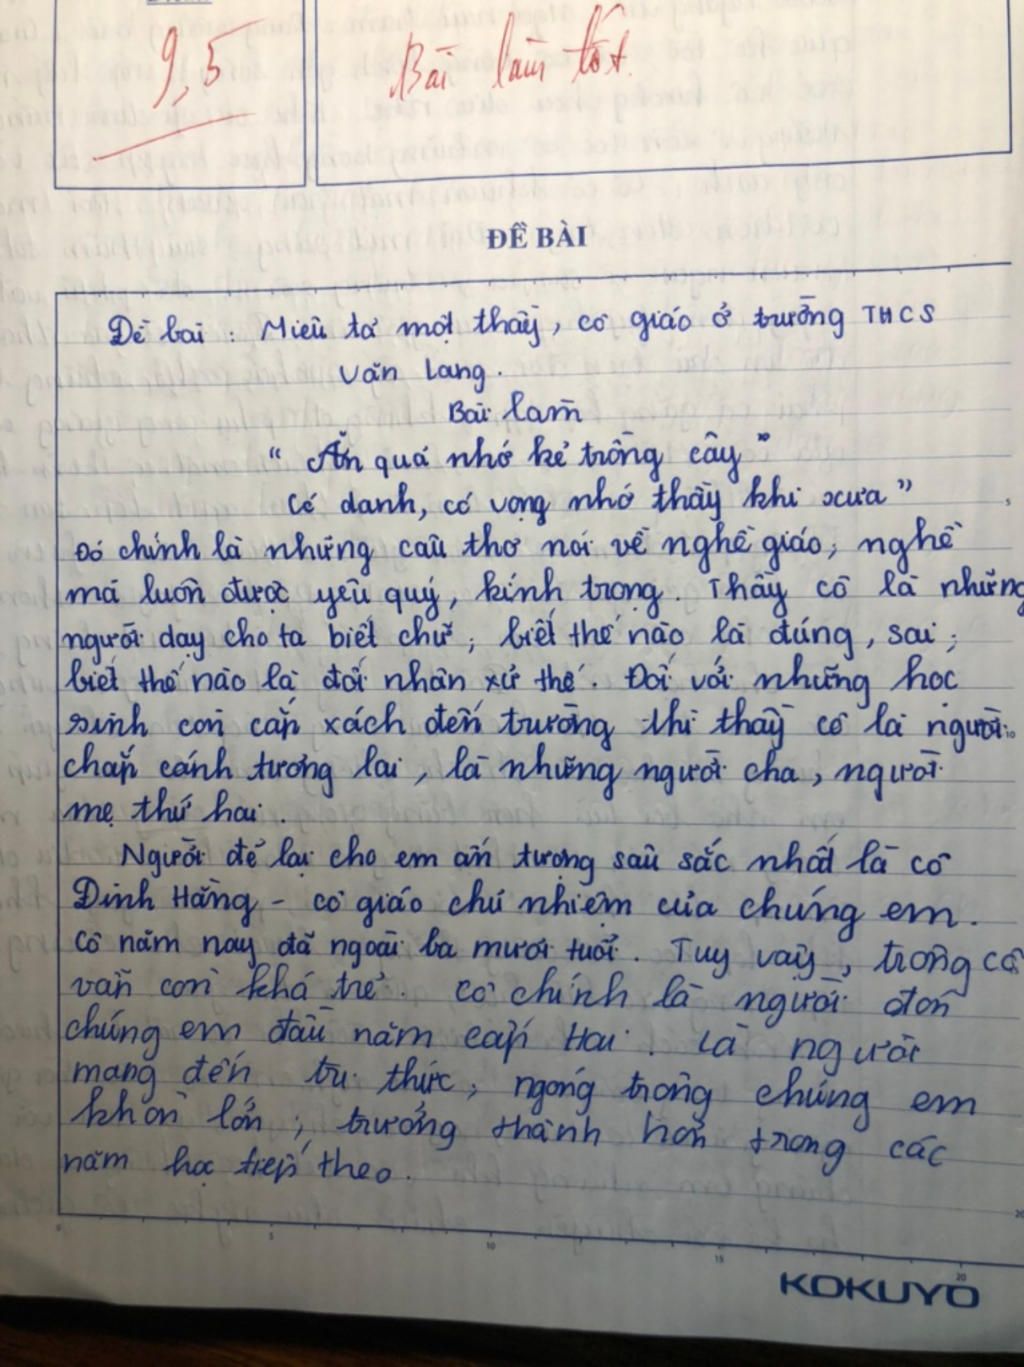 9,5
Bài làm tốt.
ĐỀ BÀI
Đề bài : Miêu tả một thầy, cô giáo ở trường THCS
Văn Lang.
Bài làm
“ Ăn quả nhớ kẻ trồng cây”
Có danh, có vọng nhớ thầy khi xưa”
Đó chính là những câu thơ nói về nghề giáo, nghề
mà luôn được yêu quý, kính trọng. Thầy cô là những
người dạy cho ta biết chữ, biết thế nào là đúng, sai,
biết thế nào là đối nhân xử thế. Đối với những học
sinh còn cắp xách đến trường thì thầy cô là người
chắp cánh tương lai, là những người cha, người
mẹ thứ hai.
Người để lại cho em ấn tượng sâu sắc nhất là cô
Đinh Hằng - cô giáo chủ nhiệm của chúng em.
Cô năm nay đã ngoài ba mươi tuổi. Tuy vậy, trông cô
vẫn còn khá trẻ. Cô chính là người đón
chúng em đầu năm cấp Hai. Là người
mang đến tri thức, ngóng trông chúng em
khôn lớn, trưởng thành hơn trong các
năm học tiếp theo.
5
10
15
20
KOKUYO